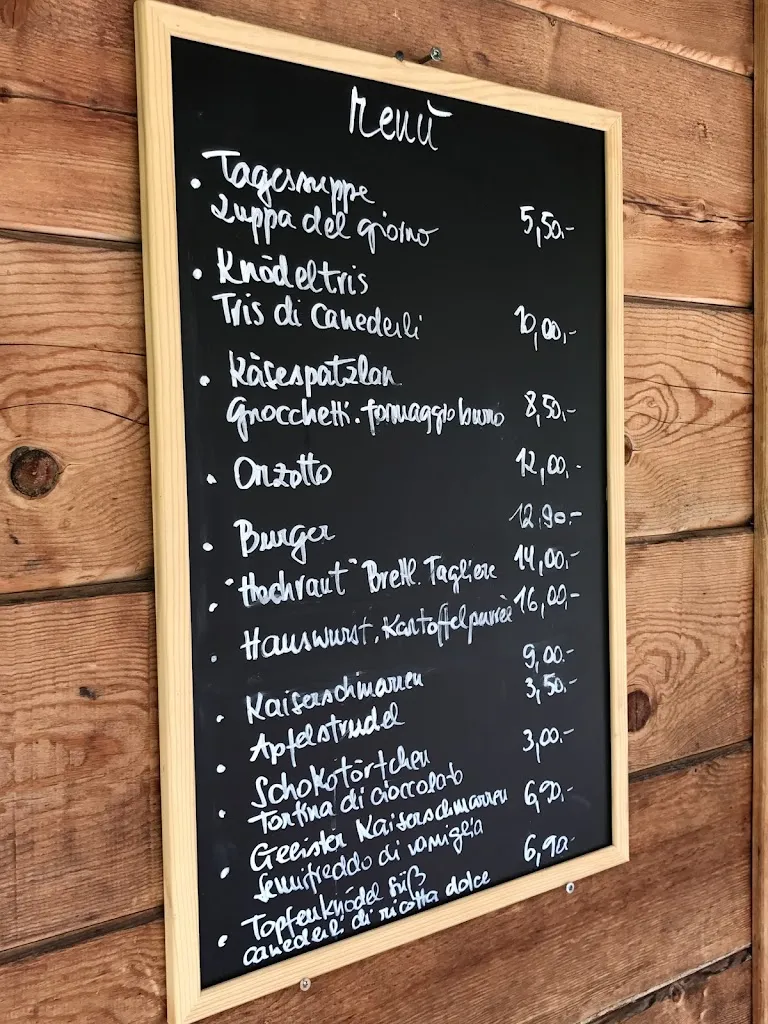 Menù
• Tagessuppe
Zuppa del giorno 5,50.-
• Knödeltris
Tris di Canederli 10,00.-
• Käsespatzlan
Gnocchetti. formaggio burro 8,50.-
• Orzotto 12,00.-
• Burger 12,90.-
• "Hochraut" Brettl. Tagliere 14,00.-
• Hauswurst, Kartoffelpurreè 16,00.-
• Kaiserschmarren 9,00.-
• Apfelstrudel 3,50.-
• Schokotörtchen
Tortina di cioccolato 3,00.-
• Geeister Kaiserschmarren
Semifreddo di vaniglia 6,90.-
• Topfenknödel süß
canederli di ricotta dolce 6,90